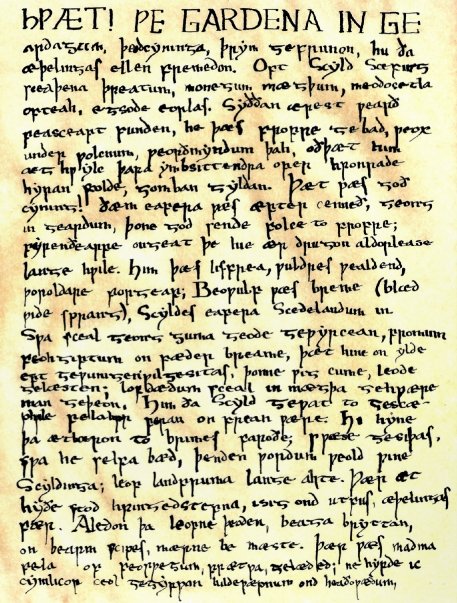 HǷÆT! ǷE GARDENA IN GE
ardagum, þeodcyninga, þrym gefrunon, hu ða
æþelingas ellen fremedon. Oft Scyld Scefing
sceaþena þreatum, monegum mægþum, meodosetla
ofteah, egsode eorlas. Syððan ærest ƿearð
feasceaft funden, he þæs frofre gebad, ƿeox
under ƿolcnum, ƿeorðmyndum þah, oðþæt him
æghƿylc þara ymbsittendra ofer hronrade
hyran scolde, gomban gyldan. Þæt ƿæs god
cyning! Ðæm eafera ƿæs æfter cenned, geong
in geardum, þone god sende folce to frofre;
fyrenðearfe ongeat þe hie ær drugon aldorlease
lange hƿile. Him þæs liffrea, ƿuldres ƿealdend,
ƿoroldare forgeaf; Beoƿulf ƿæs breme (blæd
ƿide sprang), Scyldes eafera Scedelandum in
Sƿa sceal geong guma gode geƿyrcean, fromum
feohgiftum on fæder bearme, þæt hine on ylde
eft geƿunigen ƿilgesiþas, þonne ƿig cume, leode
gelæsten; lofdædum sceal in mægþa gehƿære
man geþeon. Him ða Scyld geƿat to gescæ-
phƿile felahror feran on frean ƿære. Hi hyne
þa ætbæron to brimes faroðe; sƿæse gesiþas,
sƿa he selfa bæd, þenden ƿordum ƿeold ƿine
Scyldinga; leof landfruma lange ahte. Þær æt
hyðe stod hringedstefna, isig ond utfus, æþelinges
fær. Aledon þa leofne þeoden, beaga bryttan,
on bearm scipes, mærne be mæste. Þær ƿæs madma
fela of feorƿegum, frætƿa, gelæded; ne hyrde ic
cymlicor ceol gegyrƿan hildeƿæpnum ond heaðoƿædum,